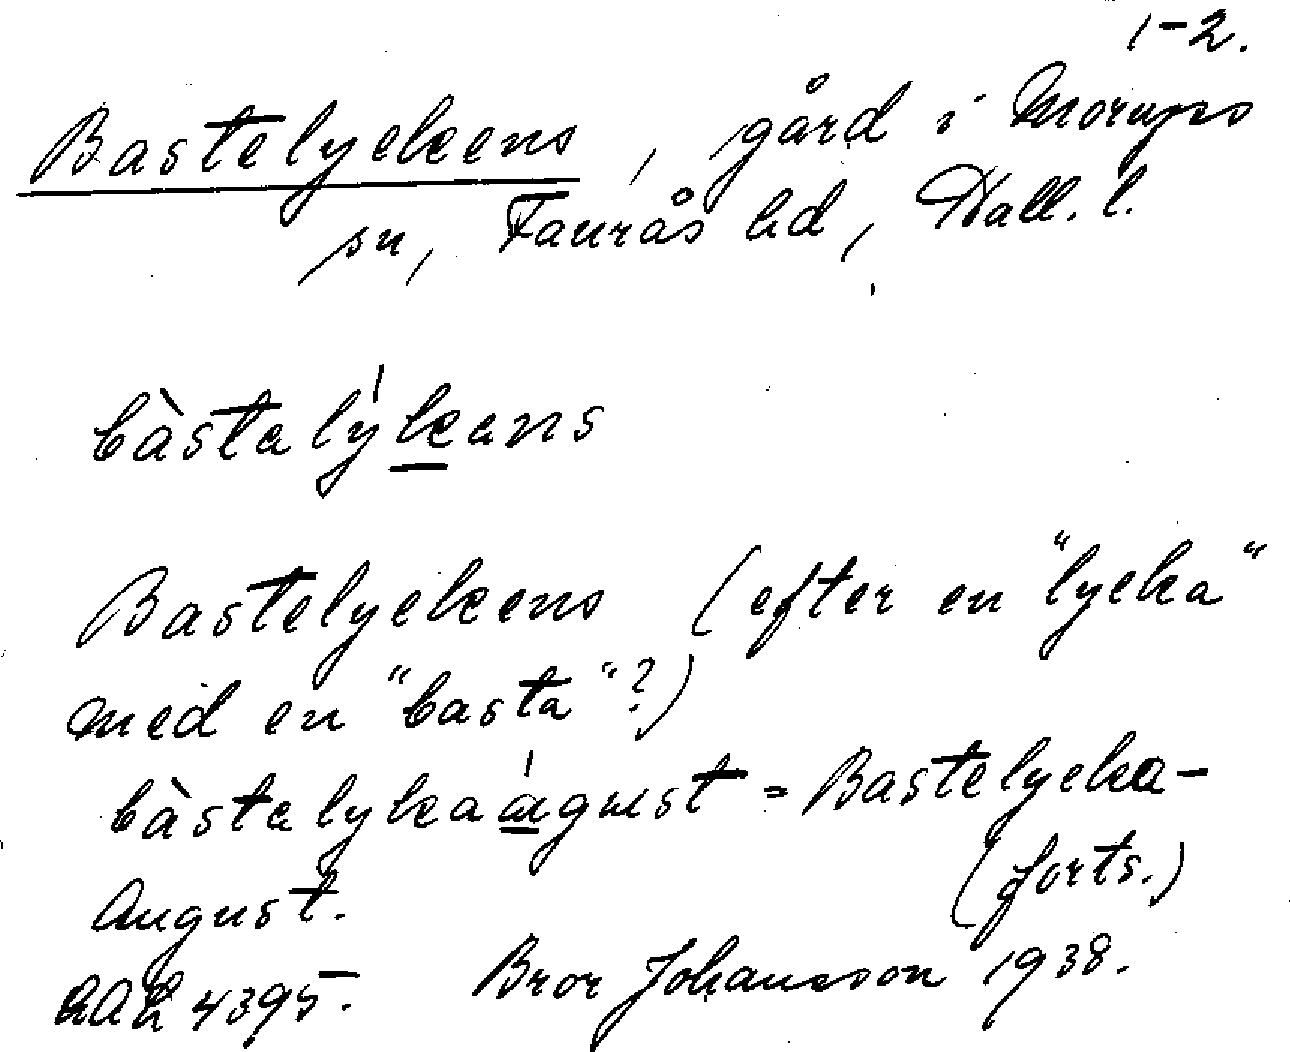 1-2.
Bastelyckens, gård i Morups
sn, Faurås hd, Hall. l.
bàstalýkans
Bastelyckens (efter en "lycka"
med en "basta"?)
bàstalykaáugust = Bastelycka-
August. (forts.)
4395. Bror Johansson 1938.